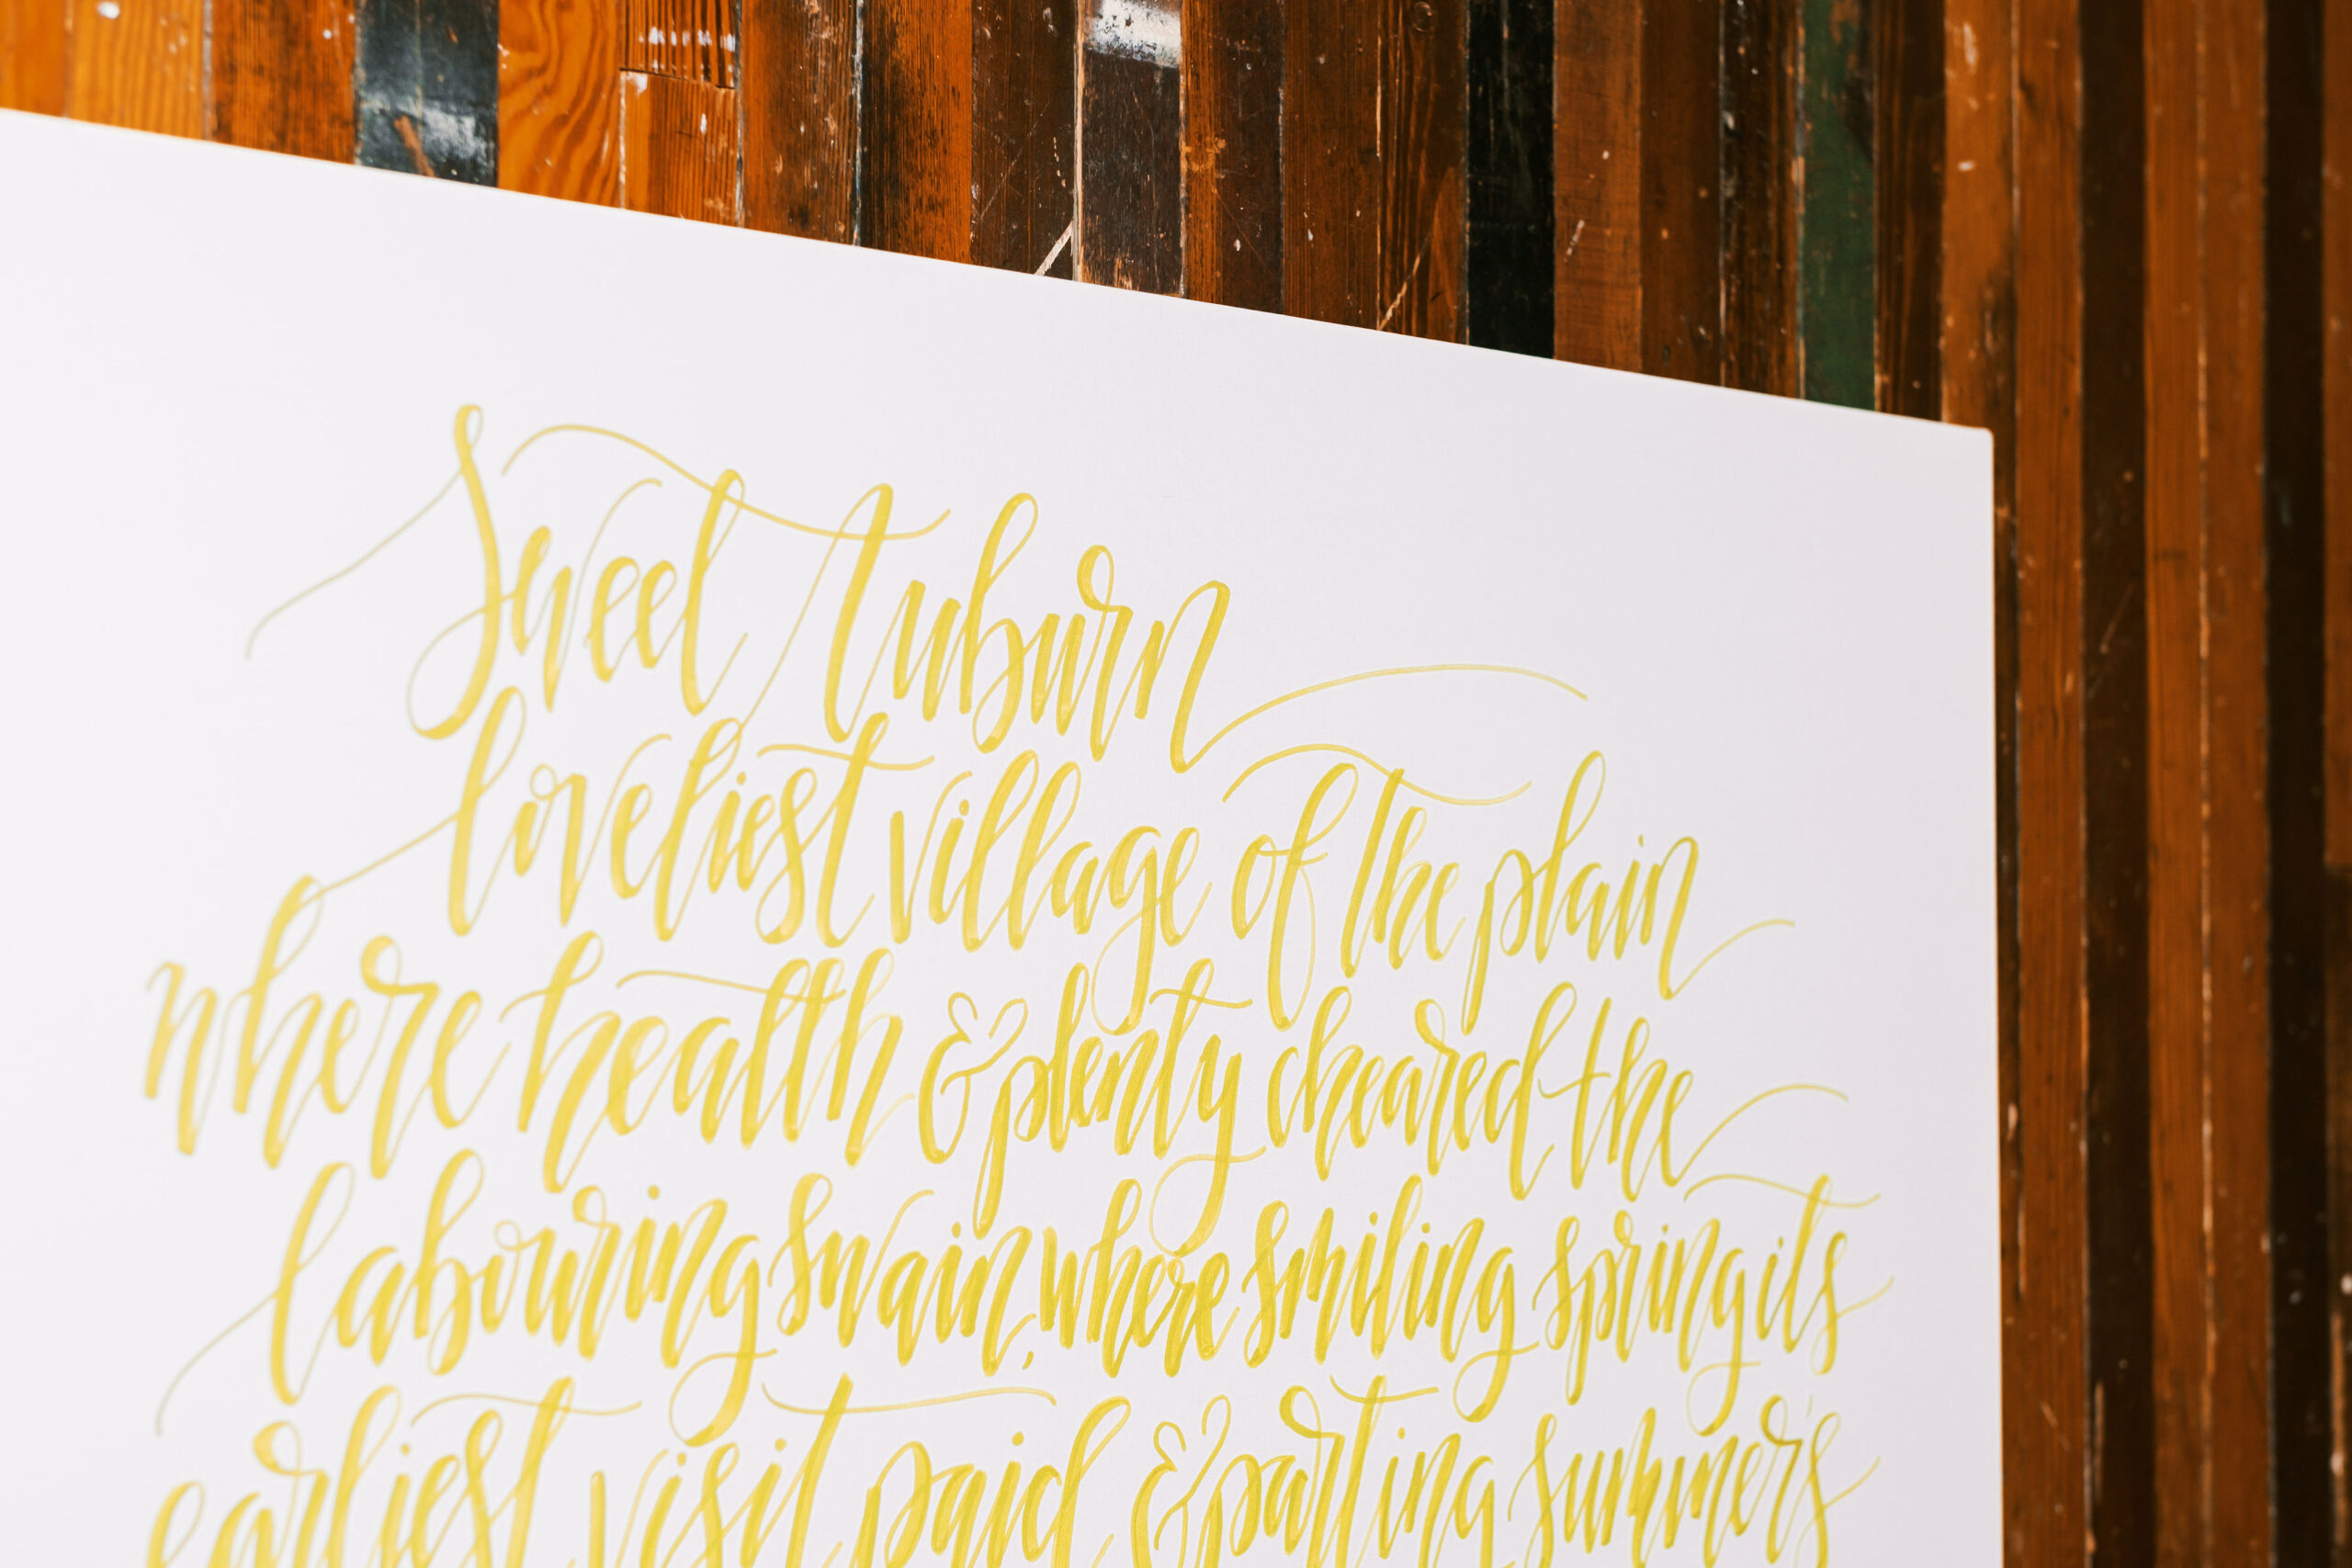 Sweet Auburn
loveliest village of the plain
where health & plenty cheared the
labouring swain, where smiling spring its
earliest visit paid, & parting summer's